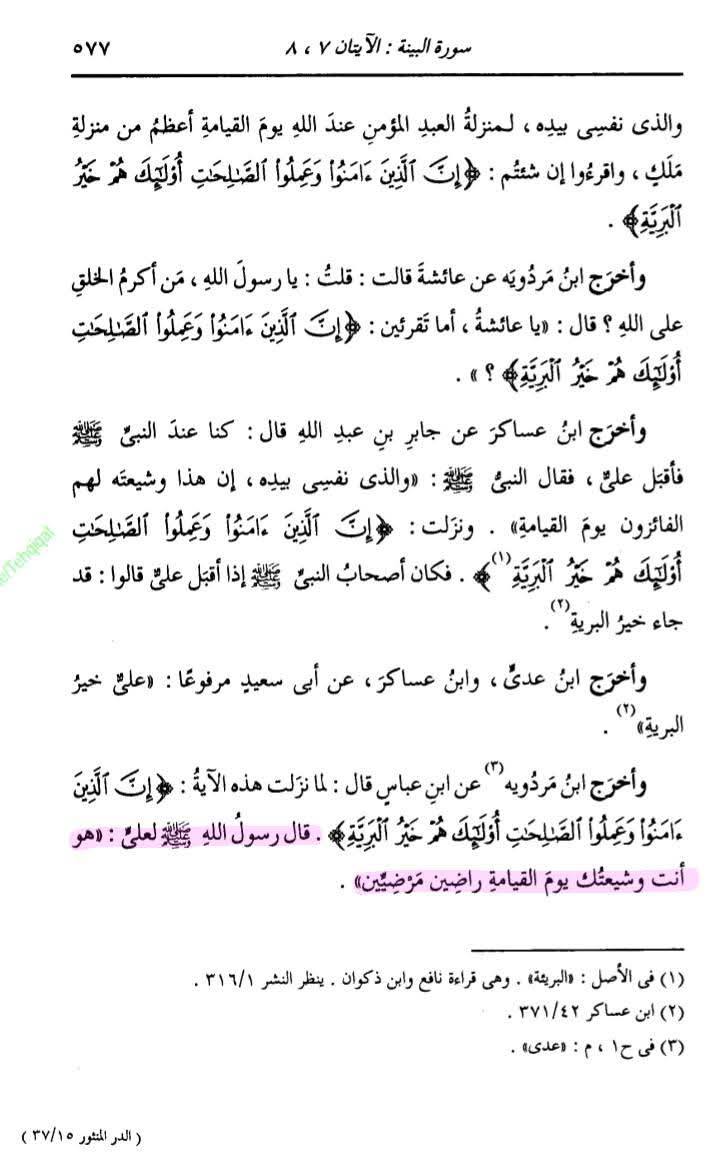 سورة البينة : الآيتان ٧ ، ٨
٥٧٧
والذى نفسِى بيدِه ، لـمنزلةُ العبدِ المؤمنِ عندَ اللهِ يومَ القيامةِ أعظمُ من منزلةِ
مَلَكٍ ، واقرءُوا إن شئتُم : ﴿إِنَّ ٱلَّذِينَ ءَامَنُوا۟ وَعَمِلُوا۟ ٱلصَّـٰلِحَـٰتِ أُو۟لَـٰٓئِكَ هُمْ خَيْرُ
ٱلْبَرِيَّةِ﴾ .
وأخرَج ابنُ مَردُويَه عن عائشةَ قالت : قلتُ : يا رسولَ اللهِ ، مَن أكرمُ الخلقِ
على اللهِ ؟ قال : «يا عائشةُ ، أما تَقرئين : ﴿إِنَّ ٱلَّذِينَ ءَامَنُوا۟ وَعَمِلُوا۟ ٱلصَّـٰلِحَـٰتِ
أُو۟لَـٰٓئِكَ هُمْ خَيْرُ ٱلْبَرِيَّةِ﴾ ؟ » .
وأخرَج ابنُ عساكرَ عن جابرِ بنِ عبدِ اللهِ قال : كنا عندَ النبىِّ ﷺ
فأقبَل علىٌّ ، فقال النبىُّ ﷺ : «والذى نفسِى بيدِه ، إن هذا وشيعتَه لهم
الفائزون يومَ القيامةِ» . ونزَلت : ﴿إِنَّ ٱلَّذِينَ ءَامَنُوا۟ وَعَمِلُوا۟ ٱلصَّـٰلِحَـٰتِ
أُو۟لَـٰٓئِكَ هُمْ خَيْرُ ٱلْبَرِيَّةِ(١)﴾ . فكان أصحابُ النبىِّ ﷺ إذا أقبَل علىٌّ قالوا : قد
جاء خيرُ البريةِ(٢).
وأخرَج ابنُ عدىٍّ ، وابنُ عساكرَ ، عن أبى سعيدٍ مرفوعًا : «علىٌّ خيرُ
البريةِ»(٢) .
وأخرَج ابنُ مَردُويه(٣) عن ابنِ عباسٍ قال : لما نزَلت هذه الآيةُ : ﴿إِنَّ ٱلَّذِينَ
ءَامَنُوا۟ وَعَمِلُوا۟ ٱلصَّـٰلِحَـٰتِ أُو۟لَـٰٓئِكَ هُمْ خَيْرُ ٱلْبَرِيَّةِ﴾ . قال رسولُ اللهِ ﷺ لعلىٍّ : «هو
أنت وشيعتُك يومَ القيامةِ راضِين مَرْضِيِّين» .
(١) فى الأصل : «البريئة» . وهى قراءة نافع وابن ذكوان . ينظر النشر ٣١٦/١ .
(٢) ابن عساكر ٣٧١/٤٢ .
(٣) فى ح١ ، م : «عدى» .
( الدر المنثور ٣٧/١٥ )